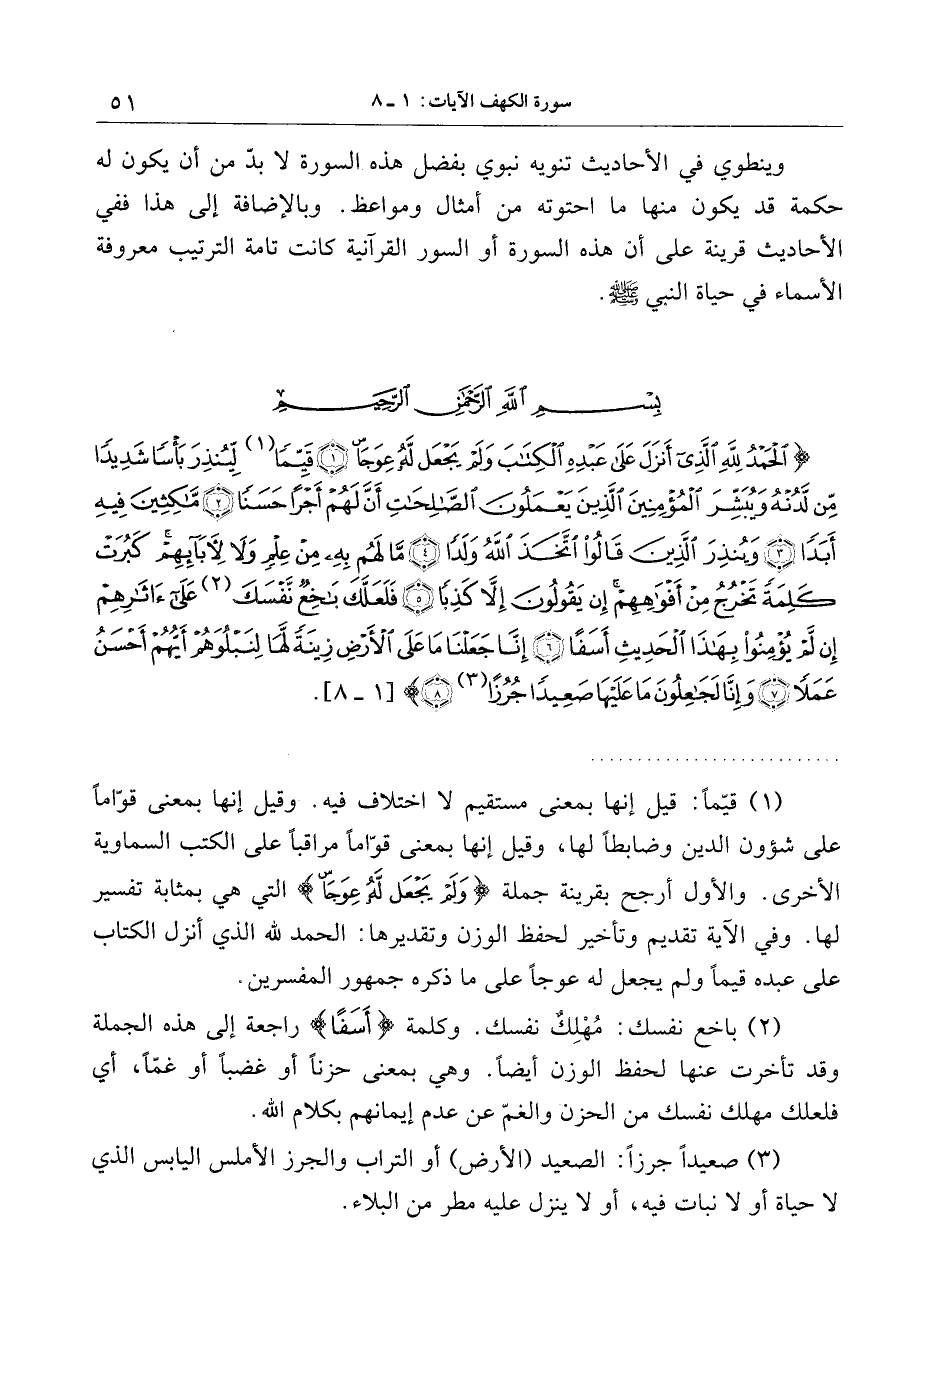 سورة الكهف الآيات: ١ ـ ٨ ٥١
وينطوي في الأحاديث تنويه نبوي بفضل هذه السورة لا بدّ من أن يكون له
حكمة قد يكون منها ما احتوته من أمثال ومواعظ. وبالإضافة إلى هذا ففي
الأحاديث قرينة على أن هذه السورة أو السور القرآنية كانت تامة الترتيب معروفة
الأسماء في حياة النبي ﷺ.
بِسْمِ ٱللَّهِ ٱلرَّحْمَٰنِ ٱلرَّحِيمِ
﴿ ٱلْحَمْدُ لِلَّهِ ٱلَّذِىٓ أَنزَلَ عَلَىٰ عَبْدِهِ ٱلْكِتَٰبَ وَلَمْ يَجْعَل لَّهُۥ عِوَجَاۜ ۝١ قَيِّمًا(١) لِّيُنذِرَ بَأْسًا شَدِيدًا
مِّن لَّدُنْهُ وَيُبَشِّرَ ٱلْمُؤْمِنِينَ ٱلَّذِينَ يَعْمَلُونَ ٱلصَّٰلِحَٰتِ أَنَّ لَهُمْ أَجْرًا حَسَنًا ۝٢ مَّٰكِثِينَ فِيهِ
أَبَدًا ۝٣ وَيُنذِرَ ٱلَّذِينَ قَالُوا۟ ٱتَّخَذَ ٱللَّهُ وَلَدًا ۝٤ مَّا لَهُم بِهِۦ مِنْ عِلْمٍ وَلَا لِءَابَآئِهِمْ ۚ كَبُرَتْ
كَلِمَةً تَخْرُجُ مِنْ أَفْوَٰهِهِمْ ۚ إِن يَقُولُونَ إِلَّا كَذِبًا ۝٥ فَلَعَلَّكَ بَٰخِعٌ نَّفْسَكَ(٢) عَلَىٰٓ ءَاثَٰرِهِمْ
إِن لَّمْ يُؤْمِنُوا۟ بِهَٰذَا ٱلْحَدِيثِ أَسَفًا ۝٦ إِنَّا جَعَلْنَا مَا عَلَى ٱلْأَرْضِ زِينَةً لَّهَا لِنَبْلُوَهُمْ أَيُّهُمْ أَحْسَنُ
عَمَلًا ۝٧ وَإِنَّا لَجَٰعِلُونَ مَا عَلَيْهَا صَعِيدًا جُرُزًا(٣) ۝٨﴾ [١ ـ ٨].
(١) قيّماً: قيل إنها بمعنى مستقيم لا اختلاف فيه. وقيل إنها بمعنى قوّاماً
على شؤون الدين وضابطاً لها، وقيل إنها بمعنى قوّاماً مراقباً على الكتب السماوية
الأخرى. والأول أرجح بقرينة جملة ﴿ وَلَمْ يَجْعَل لَّهُۥ عِوَجَاۜ ﴾ التي هي بمثابة تفسير
لها. وفي الآية تقديم وتأخير لحفظ الوزن وتقديرها: الحمد لله الذي أنزل الكتاب
على عبده قيماً ولم يجعل له عوجاً على ما ذكره جمهور المفسرين.
(٢) باخع نفسك: مُهْلِكٌ نفسك. وكلمة ﴿ أَسَفًا﴾ راجعة إلى هذه الجملة
وقد تأخرت عنها لحفظ الوزن أيضاً. وهي بمعنى حزناً أو غضباً أو غمّاً، أي
فلعلك مهلك نفسك من الحزن والغمّ عن عدم إيمانهم بكلام الله.
(٣) صعيداً جرزاً: الصعيد (الأرض) أو التراب والجرز الأملس اليابس الذي
لا حياة أو لا نبات فيه، أو لا ينزل عليه مطر من البلاء.